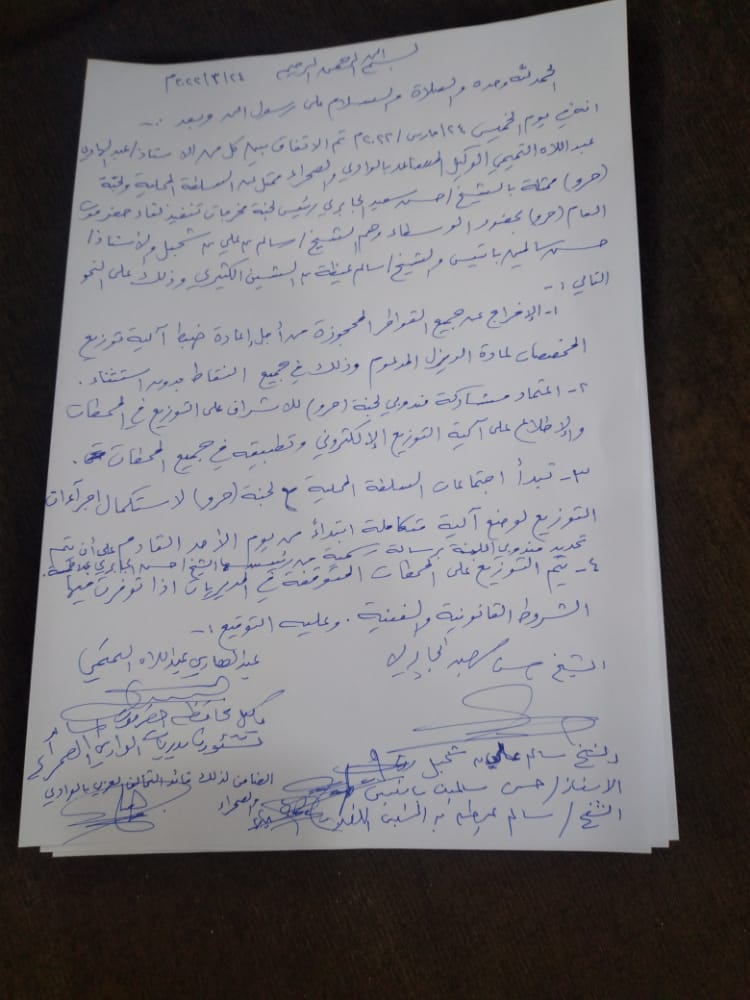 بسم الله الرحمن الرحيم ٢٠٢٢/٣/٢٤م
الحمد لله وحده والصلاة والسلام على رسول الله وبعد :-
انه في يوم الخميس ٢٤/مارس/٢٠٢٢م تم الاتفاق بين كل من الاستاذ/عبدالهادي
عبداللاه التميمي الوكيل المساعد بالوادي والصحراء ممثل عن السلطة المحلية ولجنة
(حرو) ممثلة بالشيخ/حسن سعيد الجابري رئيس لجنة مخرجات تنفيذ لقاء حضرموت
العام (حرو) بحضور الوسطاء وهم الشيخ/سالم بن علي بن شحبل والأستاذ/
حسن سالمين باتيس والشيخ/سالم عيظة بن الشين الكثيري وذلك على النحو
التالي :-
١- الإفراج عن جميع القواطر المحجوزة من أجل إعادة ضبط آلية توزيع
المخصصات لمادة الديزل المدعوم وذلك في جميع النقاط بدون استثناء .
٢- اعتماد مشاركة مندوبي لجنة (حرو) للاشراف على التوزيع في المحطات
والإطلاع على آلية التوزيع الإلكتروني وتطبيقه في جميع المحطات .
٣- تبدأ اجتماعات السلطة المحلية مع لجنة (حرو) لاستكمال اجراءات
التوزيع لوضع آلية متكاملة ابتداءً من يوم الأحد القادم على أن يتم
تحديد مندوبي اللجنة برسالة رسمية من رئيسها الشيخ/حسن الجابري
٤- يتم التوزيع على المحطات المتوقفة في المديريات اذا توفرت فيها
الشروط القانونية والفنية . وعليه التوقيع :-
الشيخ حسن سعيد الجابري
عبدالهادي عبداللاه التميمي
وكيل محافظة حضرموت
لشئون مديريات الوادي والصحراء
والشيخ سالم علي بن شحبل
الاستاذ/حسن سالمين باتيس
الشيخ/سالم عيظة بن الشين
الضامن لذلك قائد التحالف العربي بالوادي
والصحراء